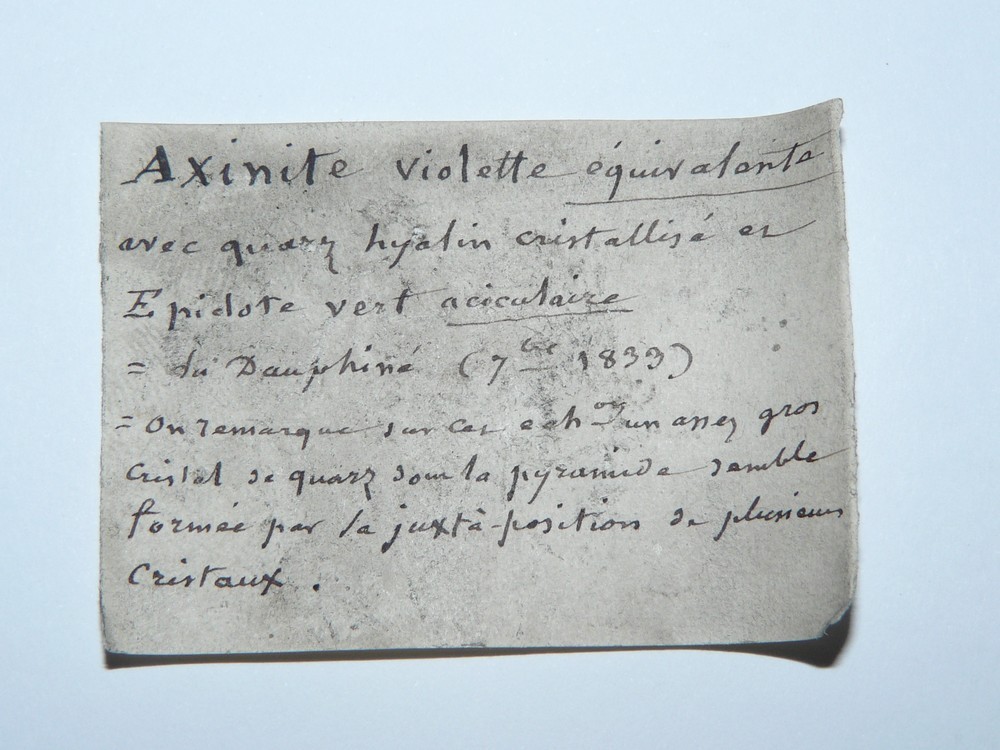 Axinite violette équivalente
avec quarz hyalin cristallisé et
Epidote vert aciculaire
= du Dauphiné (7bre 1833)
= On remarque sur cet echon un assez gros
cristal de quarz dont la pyramide semble
formée par la juxtà-position de plusieurs
cristaux.